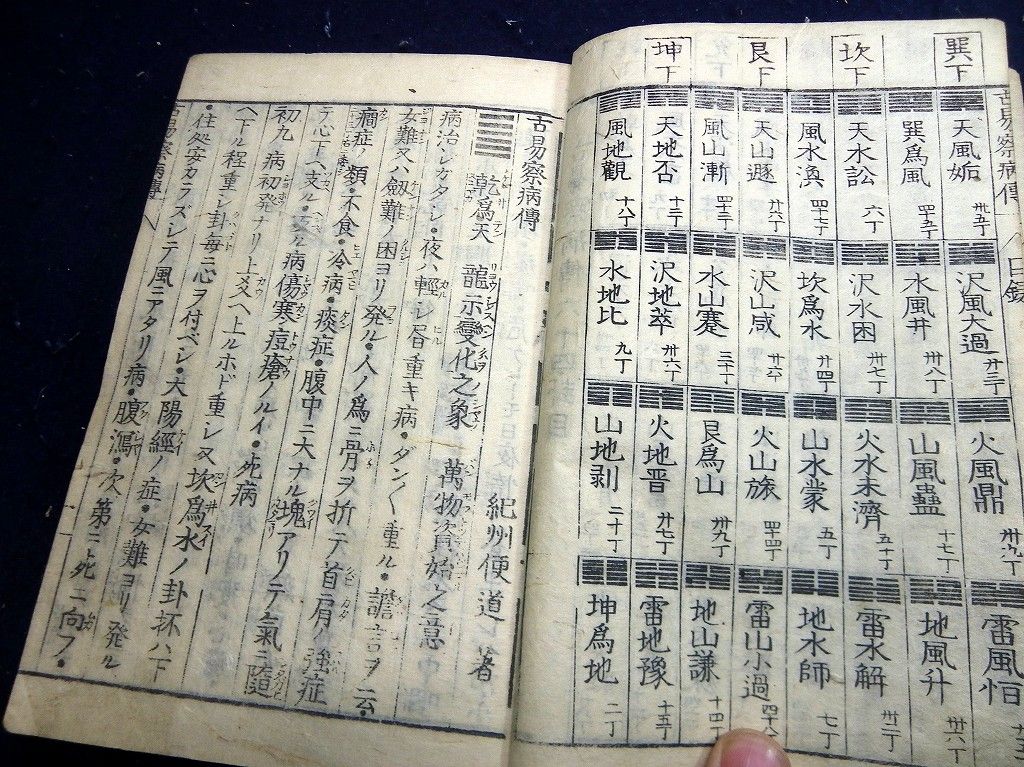 古易察病傳 目録
巽下
天風姤 卅五丁
沢風大過 卅三丁
火風鼎 卅九丁
雷風恒
巽爲風 四十五丁
水風井 卅八丁
山風蠱 十七丁
地風升 卅六丁
坎下
天水訟 六丁
沢水困 卅七丁
火水未濟 五十丁
雷水解
風水渙 四十七丁
坎爲水 廿四丁
山水蒙 五丁
地水師 七丁
艮下
天山遯 廿六丁
沢山咸 廿六丁
火山旅 四十四丁
雷山小過 四十八丁
風山漸 四十二丁
水山蹇 三十丁
艮爲山 卅九丁
地山謙 十四丁
坤下
天地否 十二丁
沢地萃 卅六丁
火地晋 廿七丁
雷地豫 十五丁
風地觀 十八丁
水地比 九丁
山地剥 二十丁
坤爲地 二丁
古易察病傳
紀州便道 著
乾爲天 龍示變化之象 萬物資始之意
病治シガタシ・夜ハ輕シ昼重キ病・ダン〱重ル・譫言ヲ云・
女難又ハ劔難ノ困ヨリ発ル・人ノ爲ニ骨ヲ折テ首肩ノ強症
癇症ノ類・不食・冷病・痰症・腹中ニ大ナル塊アリテ氣ニ
テ心下ヘ支ル・病傷寒痘瘡ノルイ・死病
初九 病初発ナリ上爻ヘ上ルホド重シ又坎爲水ノ卦抔ハ下
ヘ下ル程重シ卦毎ニ心ヲ付ベシ・大陽經ノ症・女難ヨリ発ル
・住処安カラズシテ風ニアタリ病・腹瀉・次第ニ死ニ向フ・